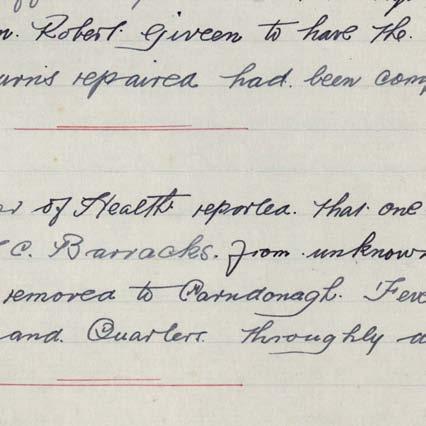 n. Robert Giveen to have the.
urris repaired had been comp
of Health reported. that one
C. Barracks. from unknown
removed to Carndonagh. Feve
and. Quarters. throughly d